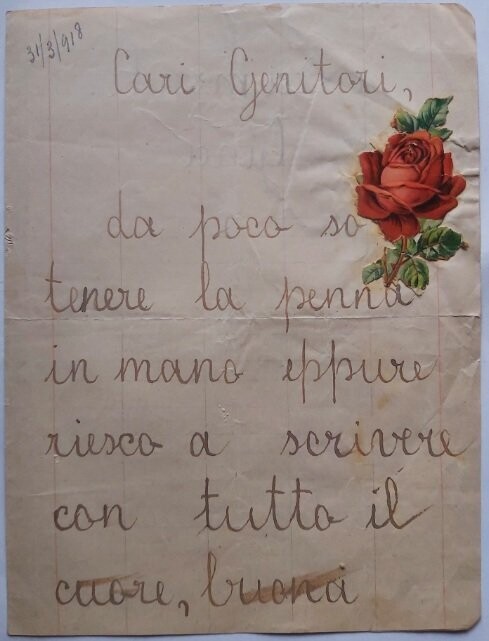 31/3/918
Cari Genitori,
da poco so
tenere la penna
in mano eppure
riesco a scrivere
con tutto il
cuore, buona